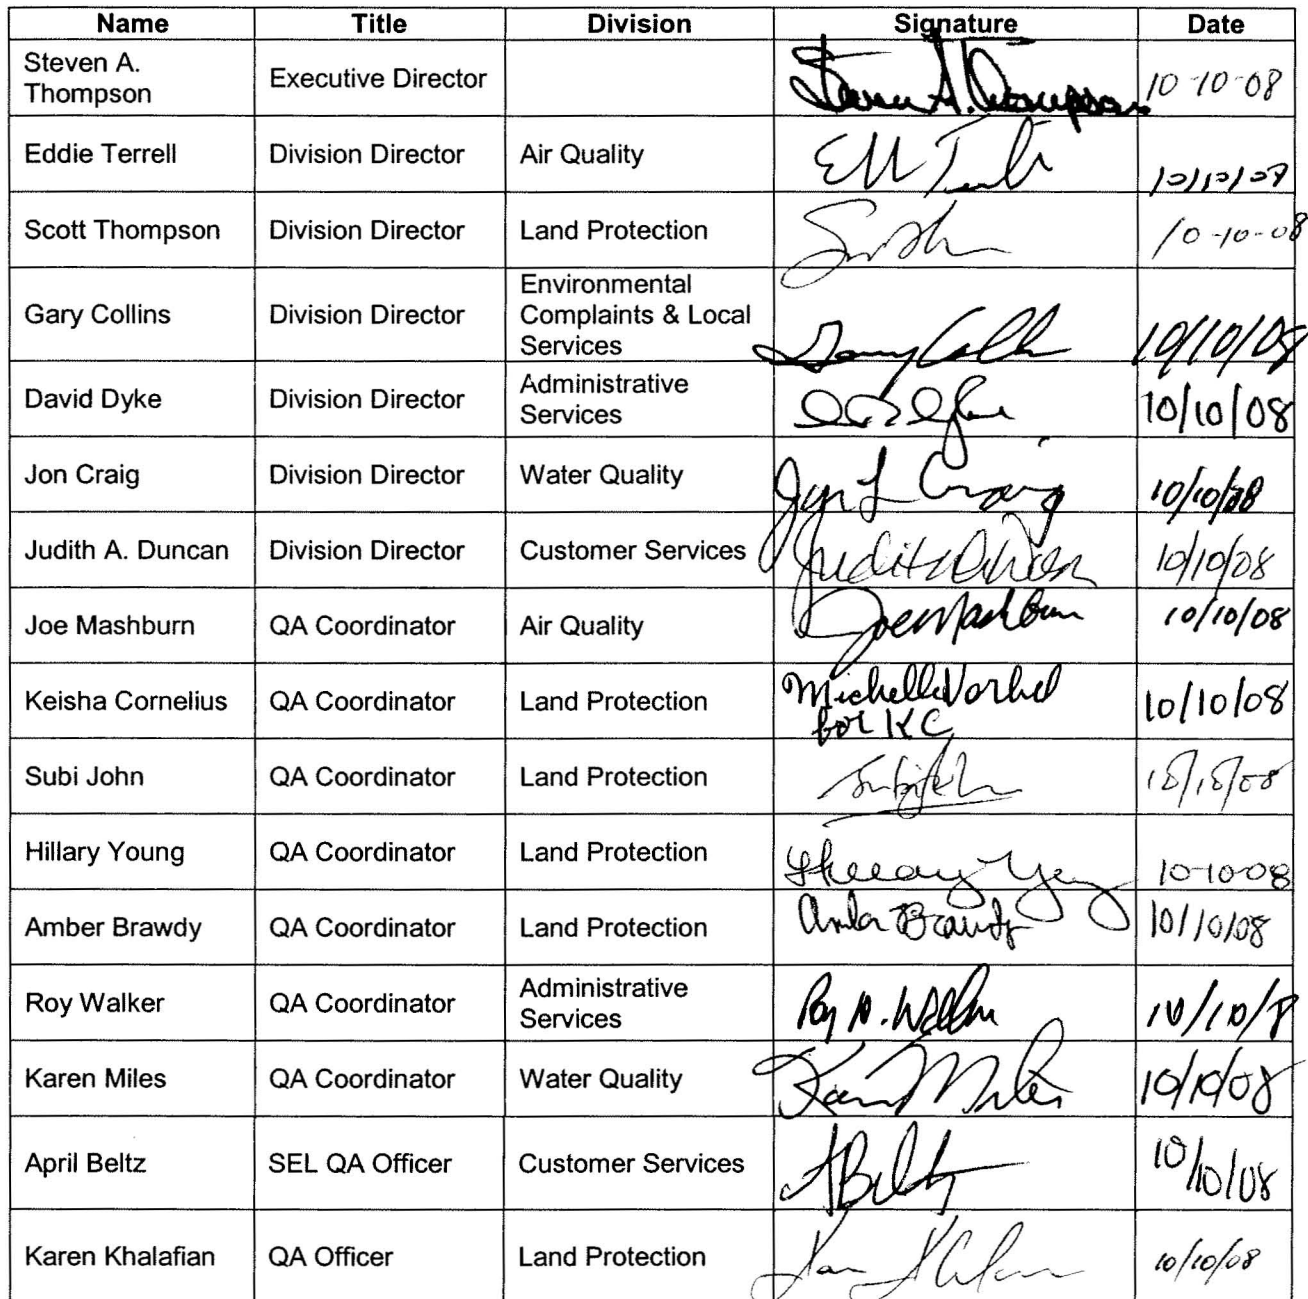 Name Title Division Signature Date
Steven A. Thompson Executive Director Steven A. Thompson 10-10-08
Eddie Terrell Division Director Air Quality 10/10/08
Scott Thompson Division Director Land Protection 10-10-08
Gary Collins Division Director Environmental Complaints & Local Services Gary Collins 10/10/08
David Dyke Division Director Administrative Services 10/10/08
Jon Craig Division Director Water Quality Jon L Craig 10/10/08
Judith A. Duncan Division Director Customer Services Judith Duncan 10/10/08
Joe Mashburn QA Coordinator Air Quality Joe Mashburn 10/10/08
Keisha Cornelius QA Coordinator Land Protection Michelle Vorhel for KC 10/10/08
Subi John QA Coordinator Land Protection Subi John 10/10/08
Hillary Young QA Coordinator Land Protection Hillary Young 10-10-08
Amber Brawdy QA Coordinator Land Protection Amber Brawdy 10/10/08
Roy Walker QA Coordinator Administrative Services Roy N. Walker 10/10/8
Karen Miles QA Coordinator Water Quality Karen Miles 10/10/08
April Beltz SEL QA Officer Customer Services ABeltz 10/10/08
Karen Khalafian QA Officer Land Protection 10/10/08